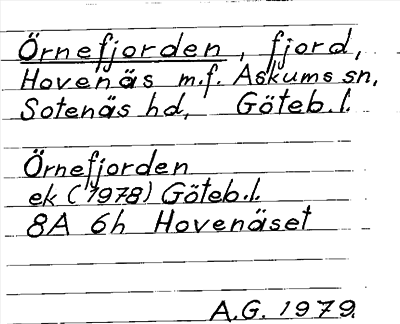 Örnefjorden, fjord,
Hovenäs m.f. Askums sn,
Sotenäs hd, Göteb.l.
Örnefjorden
ek (1978) Göteb.l.
8A 6h Hovenäset
A.G. 1979.